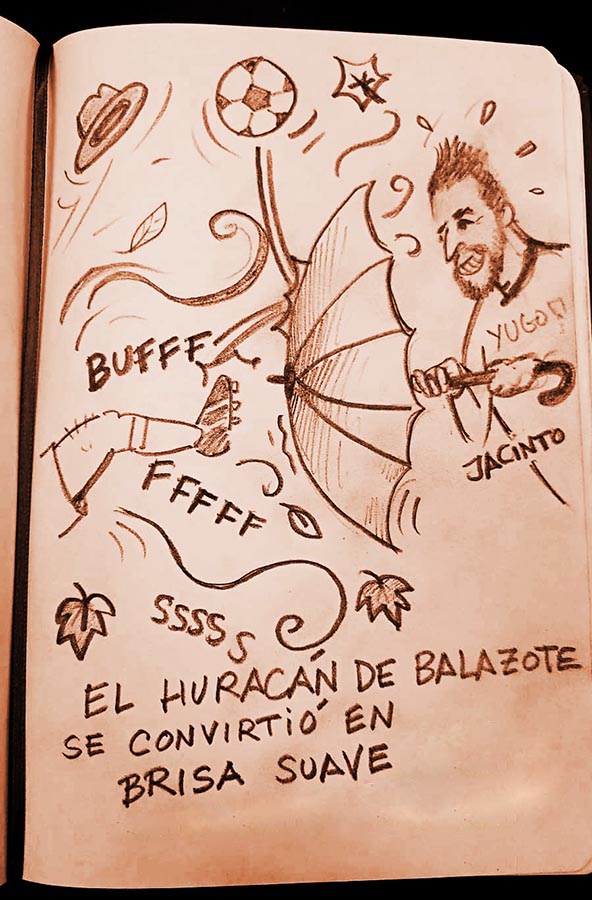 BUFFF
FFFFF
YUGO
JACINTO
SSSSS
EL HURACÁN DE BALAZOTE
SE CONVIRTIÓ EN
BRISA SUAVE